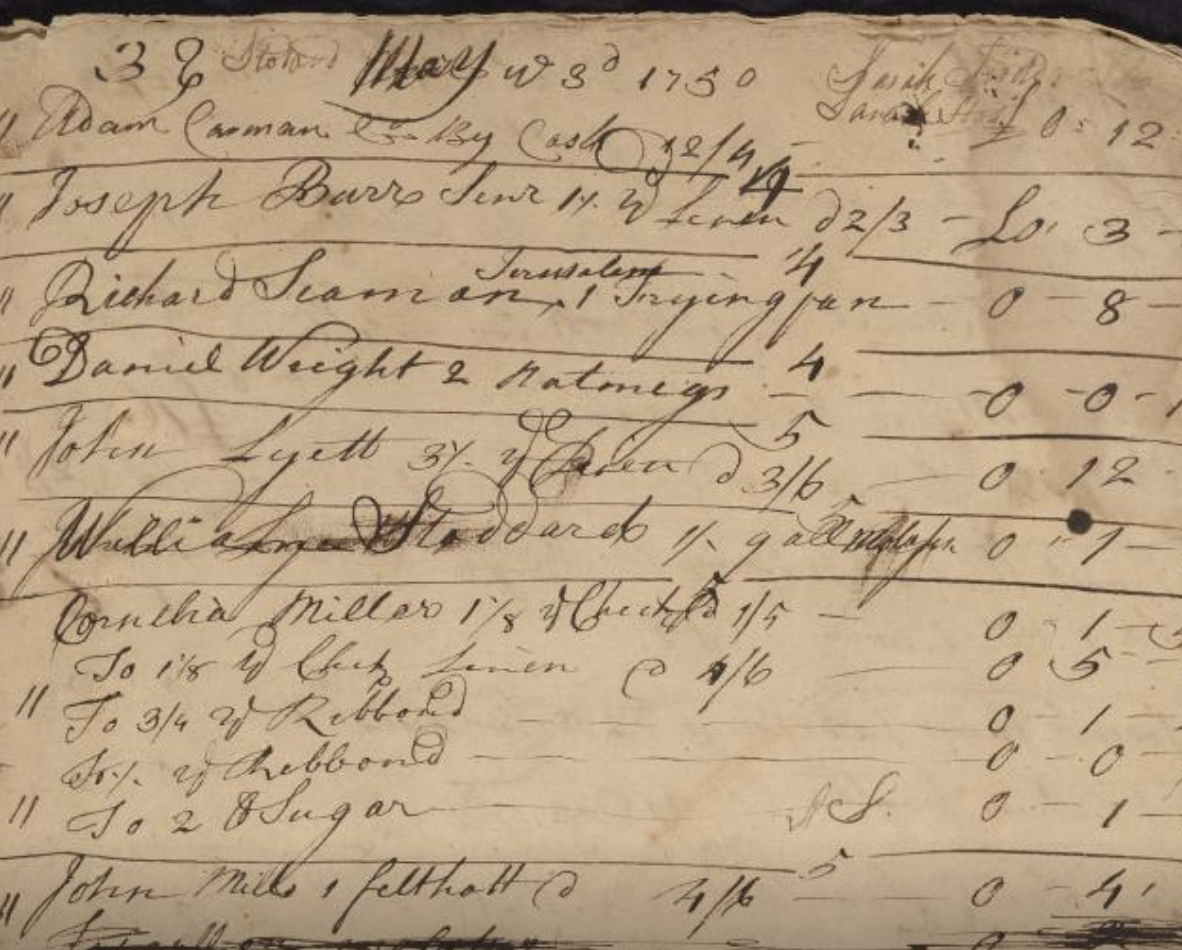 38 May ye 3d 1750 Sarah
Sarah
" Adam Carman Cr By Cash 0 : 12
4
" Joseph Burr Senr 1/2 yd Linen @ 2/3 - Lo. 3 -
Jerusalem 4
" Richard Seaman 1 Fryingpan - 0 - 8 -
4
" Daniel Wright 2 Natmegs - 0 - 0 - 1
5
" John Lyett 3 1/2 yd Linen @ 3/6 0 12
5
" William Stoddard 1/2 gall molases 0 " 1 -
5
Cornelia Millar 1 1/8 yd Check @ 1/5 - 0 1 -
To 1 1/8 yd Check Linen @ 4/6 - 0 5 -
" To 3/4 yd Ribbond - 0 - 1 -
To 1/2 yd Ribbond - 0 - 0
" To 2 lb Sugar 0 1 -
5
" John Mills 1 felthatt @ 4/6 - 0 - 4